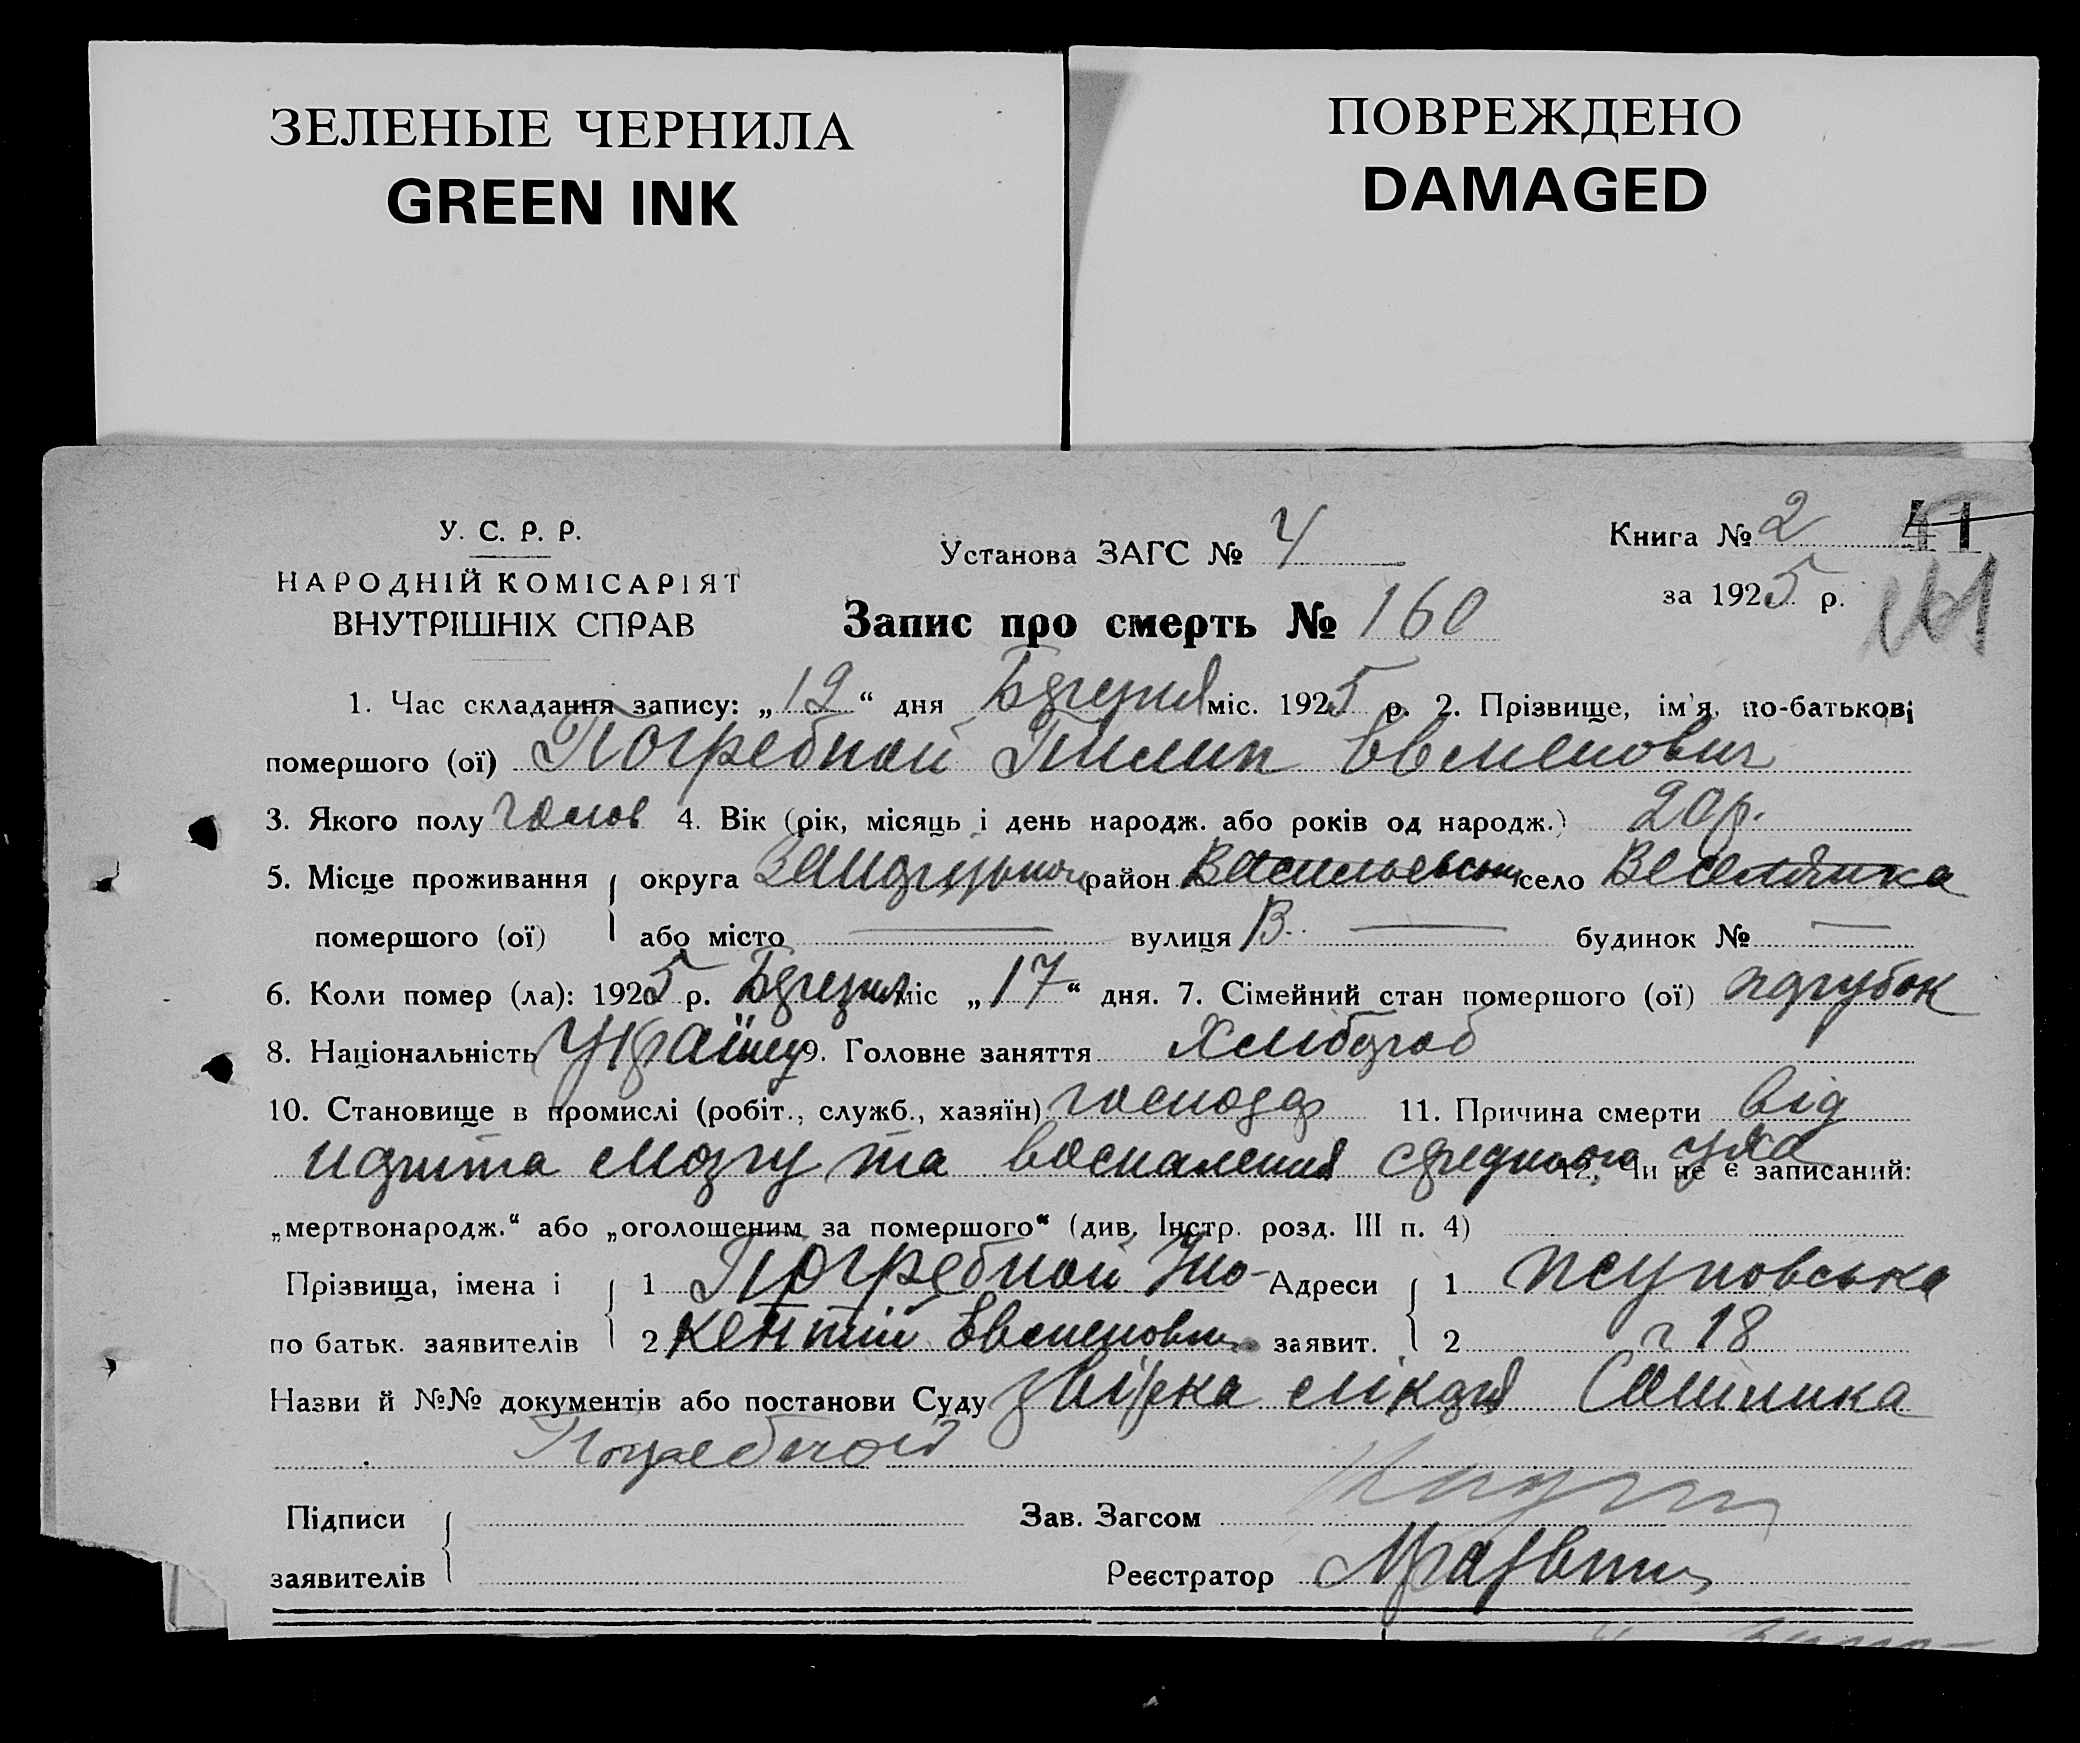 ЗЕЛЕНЫЕ ЧЕРНИЛА
GREEN INK
ПОВРЕЖДЕНО
DAMAGED
У. С. Р. Р.
НАРОДНІЙ КОМІСАРІЯТ
ВНУТРІШНІХ СПРАВ
Установа ЗАГС № 4
Книга № 2 41
за 1925 р.
Запис про смерть № 160
1. Час складання запису: „19“ дня Березня міс. 1925 р. 2. Прізвище, ім'я, по-батькові
помершого (ої) Погребной Пилип Евменович
3. Якого полу чолов 4. Вік (рік, місяць і день народж. або років од народж.) 20 р.
5. Місце проживання округа район Васильевськ село Веселянка
помершого (ої) або місто — вулиця В. — будинок № —
6. Коли помер (ла): 1925 р. Березня міс „17“ дня. 7. Сімейний стан помершого (ої) парубок
8. Національність Україн 9. Головне заняття Хлібороб
10. Становище в промислі (робіт., служб., хазяїн) господар 11. Причина смерти від
мозгу та воспаления среднього уха 12. Чи не є записаний:
„мертвонародж.“ або „оголошеним за помершого“ (див. Інстр. розд. III п. 4)
Прізвища, імена і 1 Погребной Іно- Адреси 1
по батьк. заявителів 2 кентий Евменович заявит. 2 18
Назви й №№ документів або постанови Суду лікаря
Погребной
Підписи Зав. Загсом
заявителів Реєстратор